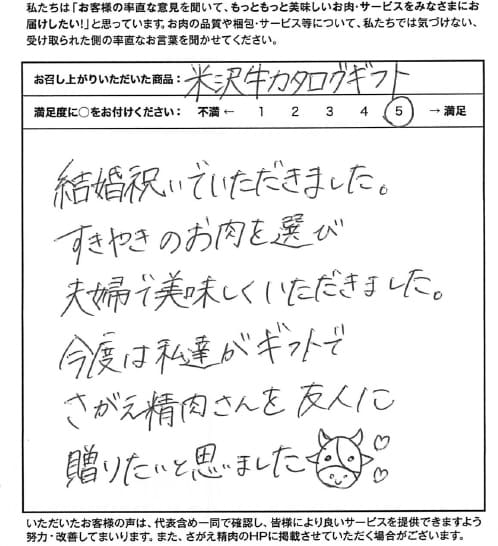 私たちは「お客様の率直な意見を聞いて、もっともっと美味しいお肉・サービスをみなさまにお
届けしたい!」と思っています。お肉の品質や梱包・サービス等について、私たちでは気づけない、
受け取られた側の率直なお言葉を聞かせてください。
お召し上がりいただいた商品：米沢牛カタログギフト
満足度に○をお付けください： 不満 ← 1 2 3 4 5 → 満足
結婚祝いでいただきました。
すきやきのお肉を選び
夫婦で美味しくいただきました。
今度は私達がギフトで
さがえ精肉さんを友人に
贈りたいと思いました
いただいたお客様の声は、代表含め一同で確認し、皆様により良いサービスを提供できますよう
努力・改善してまいります。また、さがえ精肉のHPに掲載させていただく場合がございます。